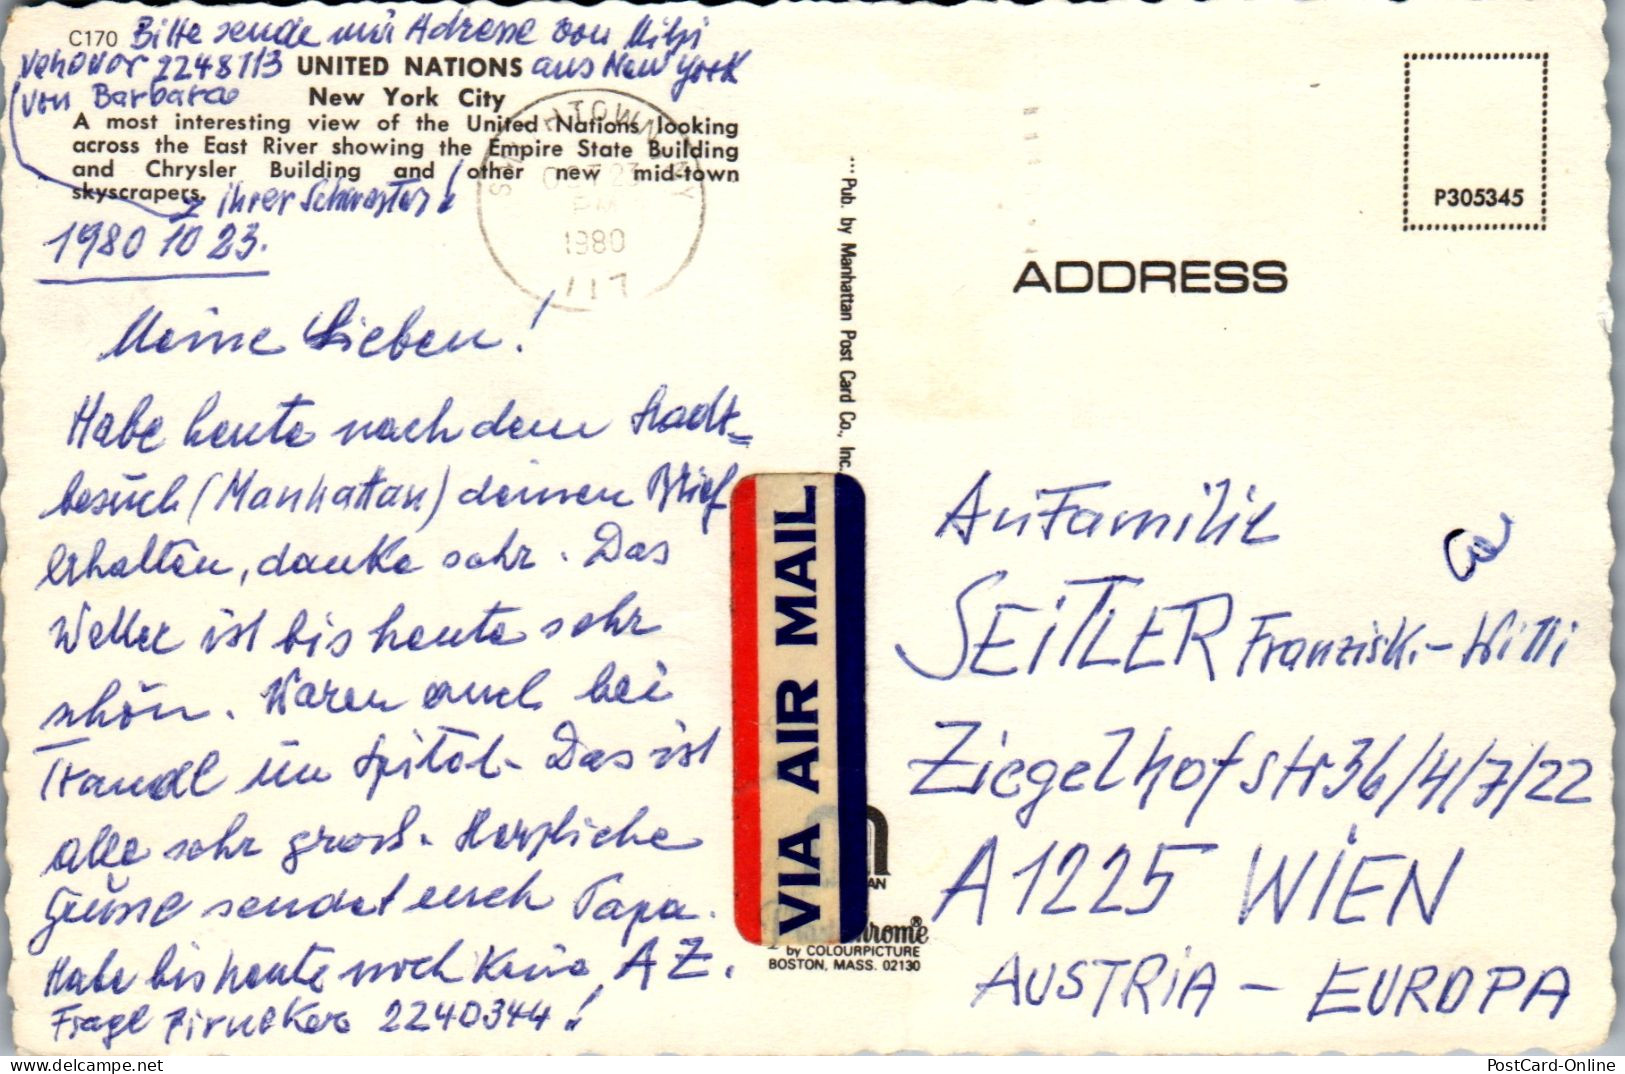 C170 Bitte sende mir Adresse von Mitzi
Vehovar 2248113 UNITED NATIONS aus New York
von Barbara New York City
A most interesting view of the United Nations looking
across the East River showing the Empire State Building
and Chrysler Building and other new mid-town
skyscrapers. ihrer Schwester!
1980 10 23.
OCT 23
PM
1980
117
Meine Lieben!
Habe heute nach dem Stadt=
besuch (Manhattan) deinen Brief
erhalten, danke sehr. Das
Wetter ist bis heute sehr
schön. Waren auch bei
Trandl im Spital. Das ist
alle sehr gross. Herzliche
Grüsse sendet euch Papa.
Habe bis heute noch keine A Z.
Frage Zirnekers 2240344!
... Pub. by Manhattan Post Card Co., Inc.
VIA AIR MAIL
by COLOURPICTURE
BOSTON, MASS. 02130
P305345
ADDRESS
An Familie
SEITLER Franzisk.-Willi
Ziegelhofstr 36/4/7/22
A 1225 WIEN
AUSTRIA - EUROPA
PostCard-Online